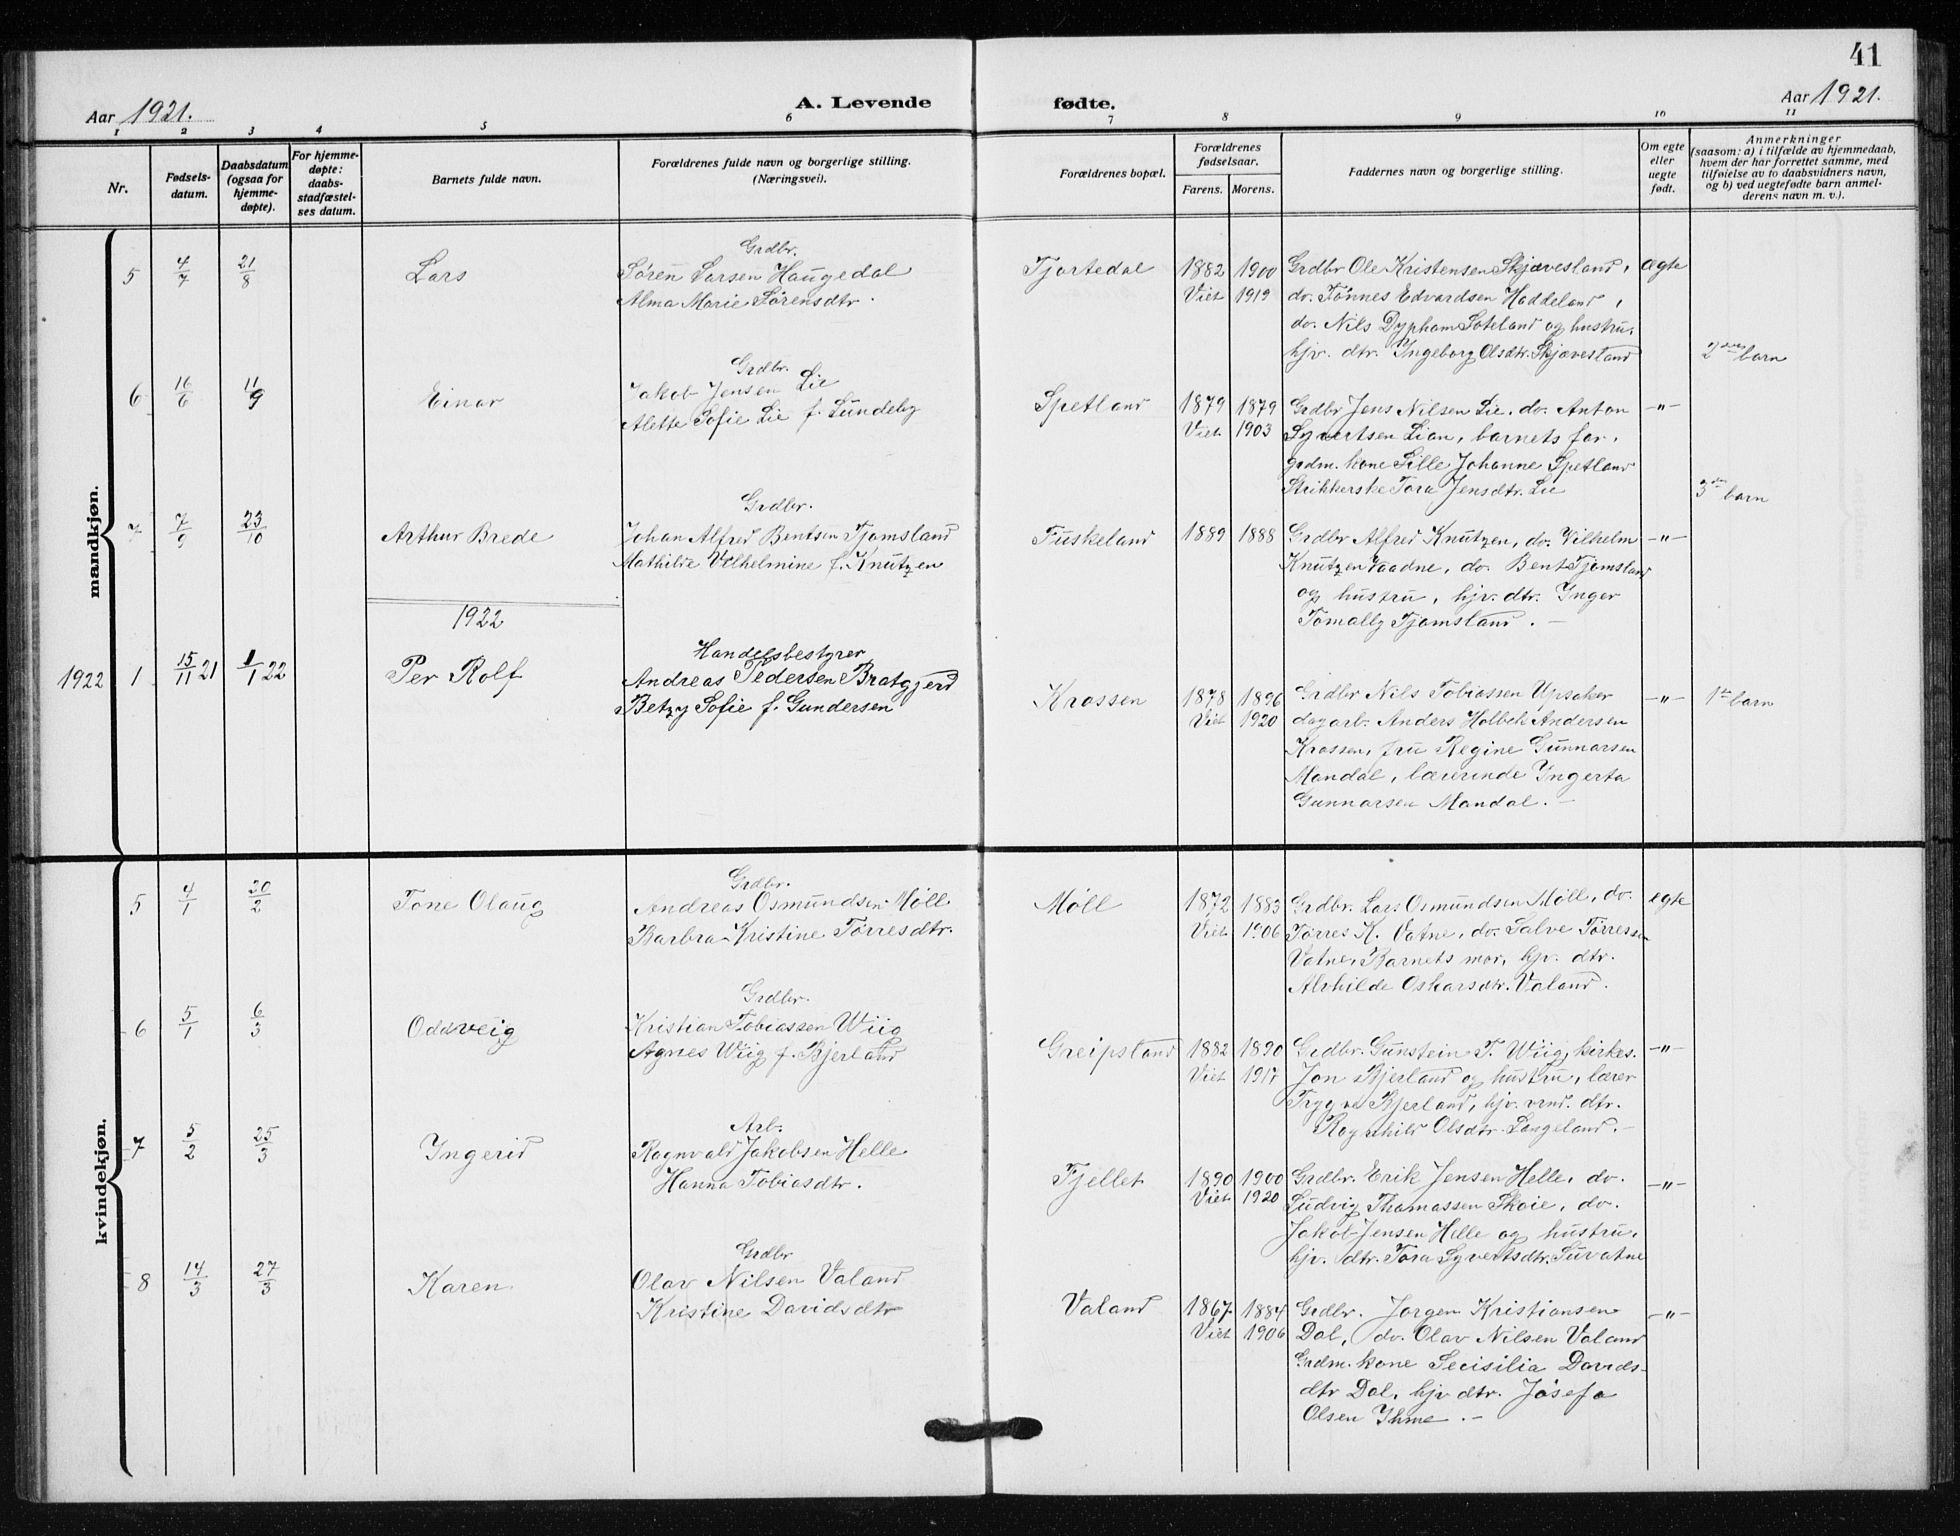 41
Aar 1921.
A. Levende
fødte.
Aar 1921.
1 2 3 4 5 6 7 8 9 10 11
Nr.
Fødsels-
datum.
Daabsdatum
(ogsaa for
hjemme-
døpte).
For hjemme-
døpte:
daabs-
stadfæstel-
ses datum.
Barnets fulde navn.
Forældrenes fulde navn og borgerlige stilling.
(Næringsvei).
Forældrenes bopæl.
Forældrenes
fødselsaar.
Farens. Morens.
Faddernes navn og borgerlige stilling.
Om egte
eller
uegte
født.
Anmerkninger
(saasom: a) i tilfælde av hjemmedaab,
hvem der har forrettet samme, med
tilføielse av to daabsvidners navn,
og b) ved uegtefødte barn anmel-
derens navn m. v.).
mandkjøn.
5 4/7 21/8 Lars
Grdbr.
Søren Larsen Haugedal
Alma Marie Sørensdtr.
Tjortedal
1882 1900
Viet 1919
Grdbr Ole Kristensen Skjævesland,
do. Tønnes Edvardsen Haddeland,
do. Nils Dypham Søteland og hustru,
hjv. dtr. Ingeborg Olsdtr. Skjævesland
ægte
2det barn
6 16/6 11/9 Einar
Grdbr.
Jakob Jensen Lie
Alette Sofie Lie f. Lundeby
Spetland
1879 1879
Viet 1903
Grdbr Jens Nilsen Lie, do. Anton
Syvertsen Lian, barnets far,
grdm. kone Sille Johanne Spetland
Strikkerske Tora Jensdtr. Lie
-"-
3de barn
7 7/9 23/10 Arthur Brede
Grdbr.
Johan Alfred Bentsen Tjomsland
Mathilde Vilhelmine f. Knutzen
Fuskeland
1889 1888
Grdbr Alfred Knutzen, do. Vilhelm
Knutzen Vaadne, do. Bent Tjomsland
og hustru, hjv. dtr. Inger
Tomally Tjomsland. -
-"-
1922
1922 1 15/11 21 1/1 22 Per Rolf
Handelsbestyrer
Andreas Pedersen Bratgjerd
Betzy Sofie f. Gundersen
Krossen
1878 1896
Viet 1920
Grdbr Nils Tobiassen Upsaker
dagarb. Anders Holbek Andersen
Krossen, fru Regine Gunnarsen
Mandal, lærerinde Ingerta
Gunnarsen Mandal. -
-"-
1ste barn
kvindekjøn.
5 4/1 20/2 Tone Olaug
Grdbr.
Andreas Osmundsen Møll
Barbra Kristine Tørresdtr.
Møll
1872 1883
Viet 1906
Grdbr. Lars Osmundsen Møll, do.
Tørres K. Vatne, do. Salve Tørressen
Vatne, Barnets mor, hjv. dtr.
Alvhilde Oskarsdtr. Valand.
egte
6 5/1 6/3 Oddveig
Grdbr.
Kristian Tobiassen Wiig
Agnes Wiig f. Bjerland
Greipsland
1882 1890
Viet 1917
Grdbr. Gunstein T. Wiig, kirkes.
Jon Bjerland og hustru, lærer
Trygve Bjerland, hjv. vend. dtr.
Ragnhild Olsdtr. Langeland. -
-"-
7 5/2 25/3 Ingerid
Arb.
Ragnvald Jakobsen Helle
Hanna Tobiasdtr.
Fjellet
1890 1900
Viet 1920
Grdbr. Erik Jensen Helle, do.
Ludvig Thomassen Skoie, do.
Jakob Jensen Helle og hustru,
hjv. dtr. Tora Syvertsdtr. Suvatne
-"-
8 14/3 27/3 Karen
Grdbr
Olav Nilsen Valand
Kristine Davidsdtr
Valand
1867 1884
Viet 1906
Grdbr. Jorgen Kristiansen
Dal, do. Olav Nilsen Valand
Grdm. kone Secisilia Davids-
dtr Dal, hjv dtr. Josefa
Olsen Ihme. -
-"-